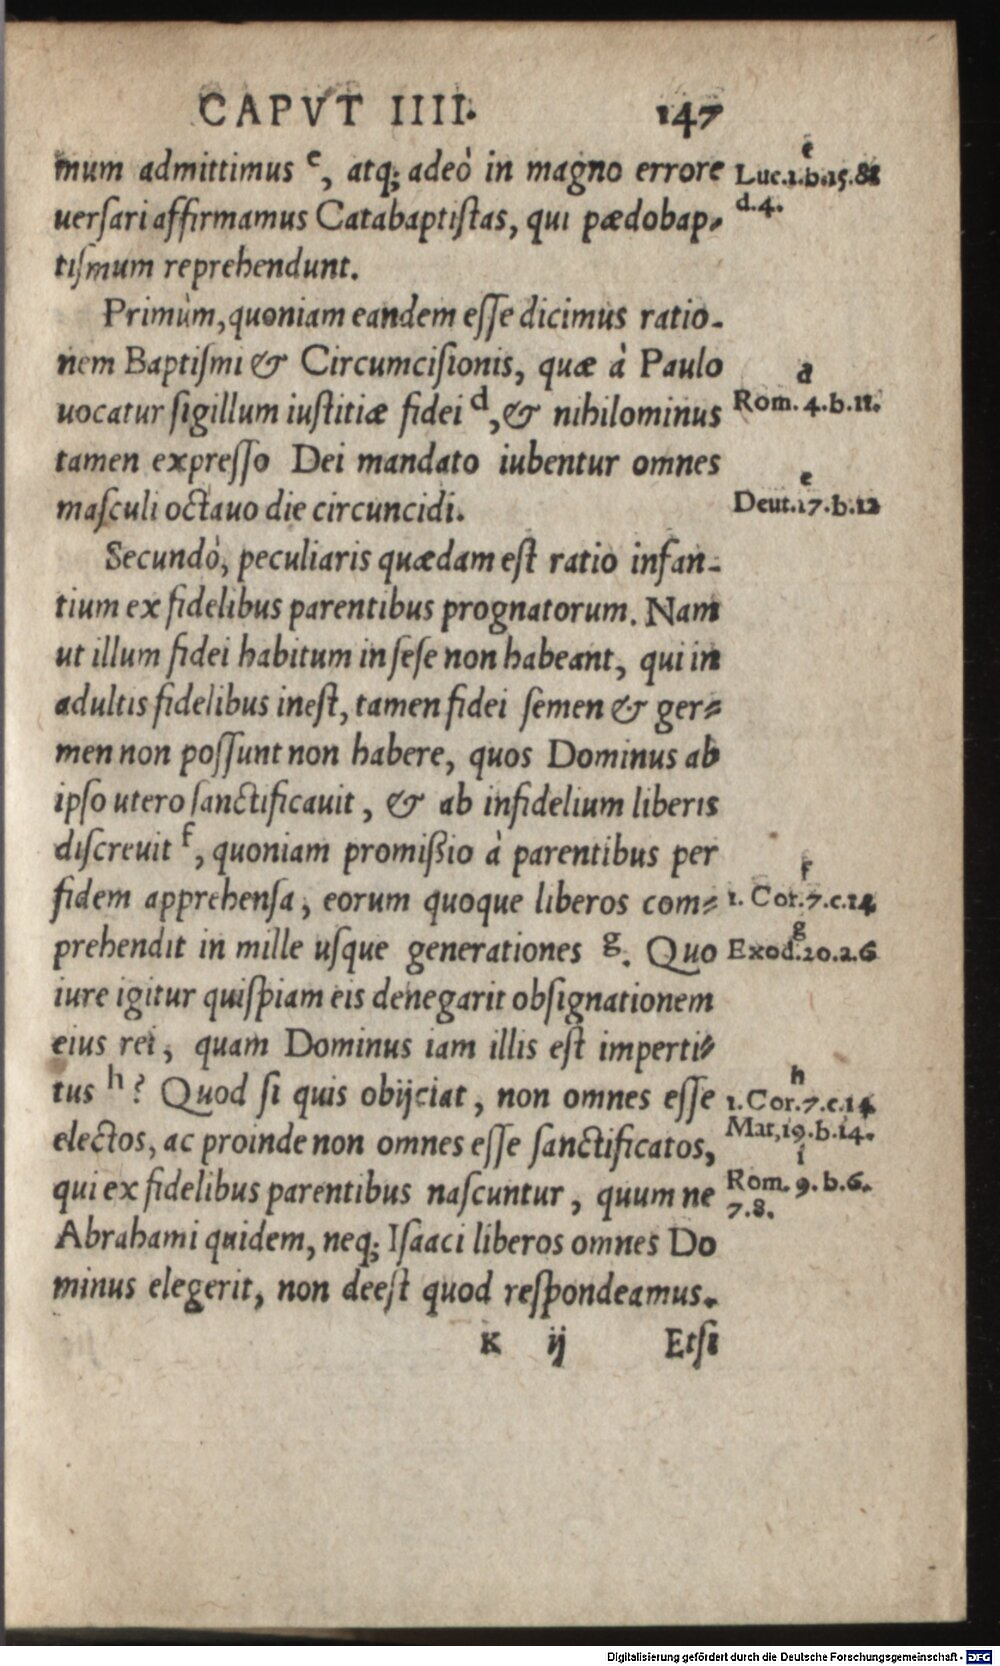 CAPVT IIII. 147
mum admittimus c, atq; adeò in magno errore
uerſari affirmamus Catabaptiſtas, qui pædobap-
tiſmum reprehendunt.
Primùm, quoniam eandem eſſe dicimus ratio-
nem Baptiſmi & Circumciſionis, quæ à Paulo
uocatur ſigillum iuſtitiæ fidei d, & nihilominus
tamen expreſſo Dei mandato iubentur omnes
maſculi octauo die circuncidi.
Secundò, peculiaris quædam eſt ratio infan-
tium ex fidelibus parentibus prognatorum. Nam
ut illum fidei habitum in ſeſe non habeant, qui in
adultis fidelibus ineſt, tamen fidei ſemen & ger-
men non poſſunt non habere, quos Dominus ab
ipſo utero ſanctificauit, & ab infidelium liberis
diſcreuit f, quoniam promißio à parentibus per
fidem apprehenſa, eorum quoque liberos com-
prehendit in mille uſque generationes g. Quo
iure igitur quiſpiam eis denegarit obſignationem
eius rei, quam Dominus iam illis eſt imperti-
tus h? Quod ſi quis obijciat, non omnes eſſe
electos, ac proinde non omnes eſſe ſanctificatos,
qui ex fidelibus parentibus naſcuntur, quum ne
Abrahami quidem, neq; Iſaaci liberos omnes Do
minus elegerit, non deeſt quod reſpondeamus.
K ij Etſi
e
Luc.1.b.15.&
d.4.
d
Rom.4.b.11.
e
Deut.17.b.12
f
1. Cor.7.c.14
g
Exod.20.a.6
h
1.Cor.7.c.14
Mat,19.b.14.
i
Rom.9.b.6.
7.8.
Digitalisierung gefördert durch die Deutsche Forschungsgemeinschaft - DFG